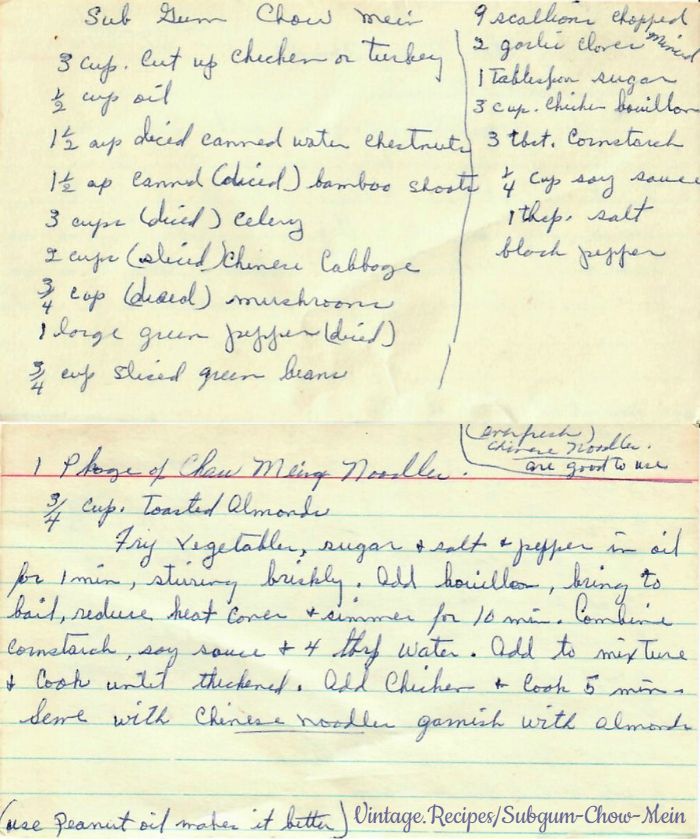 Sub Gum Chow Mein
3 cup. Cut up chicken or turkey
½ cup oil
1½ cup diced canned water chestnuts
1½ cp canned (diced) bamboo shoots
3 cups (diced) celery
2 cups (sliced) Chinese Cabbage
¾ cup (diced) mushrooms
1 large green pepper (diced)
¾ cup sliced green beans
9 scallions chopped
2 garlic cloves minced
1 tablespoon sugar
3 cup. Chicken bouillon
3 tbst. Cornstarch
¼ cup soy sauce
1 thsp. salt
black pepper
(everfresh)
Chinese Noodles.
are good to use
1 Pkage of Chow Mein Noodles.
¾ cup. Toasted Almonds
Fry vegetables, sugar & salt & pepper in oil
for 1 min, stirring briskly. Add bouillon, bring to
boil, reduce heat cover & simmer for 10 min. Combine
cornstarch, soy sauce & 4 tbsp water. Add to mixture
& Cook until thickened. Add Chicken & Cook 5 min.
Serve with Chinese noodles garnish with almonds
(use Peanut oil makes it better)
Vintage.Recipes/Subgum-Chow-Mein